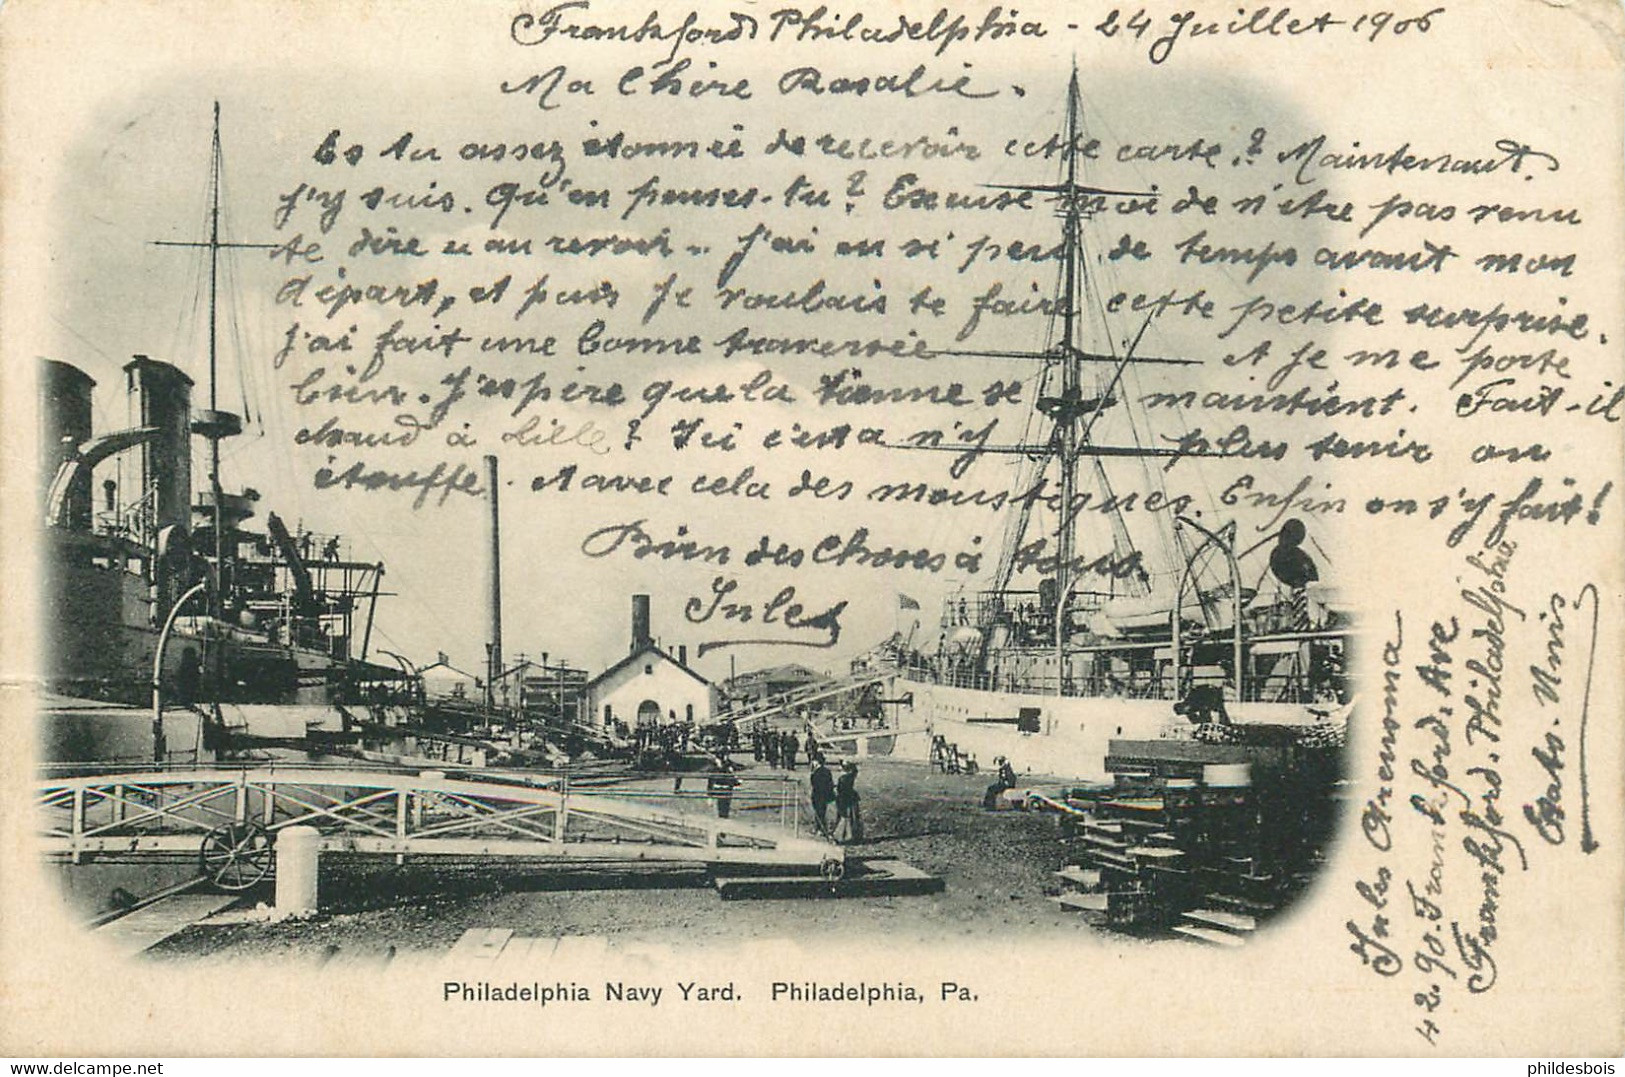 Frankford Philadelphia - 24 Juillet 1906
Ma Chère Rosalie.
Es tu assez étonnée de recevoir cette carte? Maintenant
j'y suis. Qu'en penses-tu? Excuse moi de n'être pas venu
te dire un au revoir.. J'ai eu si peu de temps avant mon
départ, et puis je voulais te faire cette petite surprise.
J'ai fait une bonne traversée et je me porte
bien. J'espère que la tienne se maintient. Fait-il
chaud à Lille? Ici c'est a n'y plus tenir on
étouffe. et avec cela des moustiques. Enfin on s'y fait!
Bien des choses à tous.
Jules
Jules
4290. Frankford. Ave
Frankford. Philadelphie
Etats-Unis
Philadelphia Navy Yard. Philadelphia, Pa.
delcampe.net
phildesbois